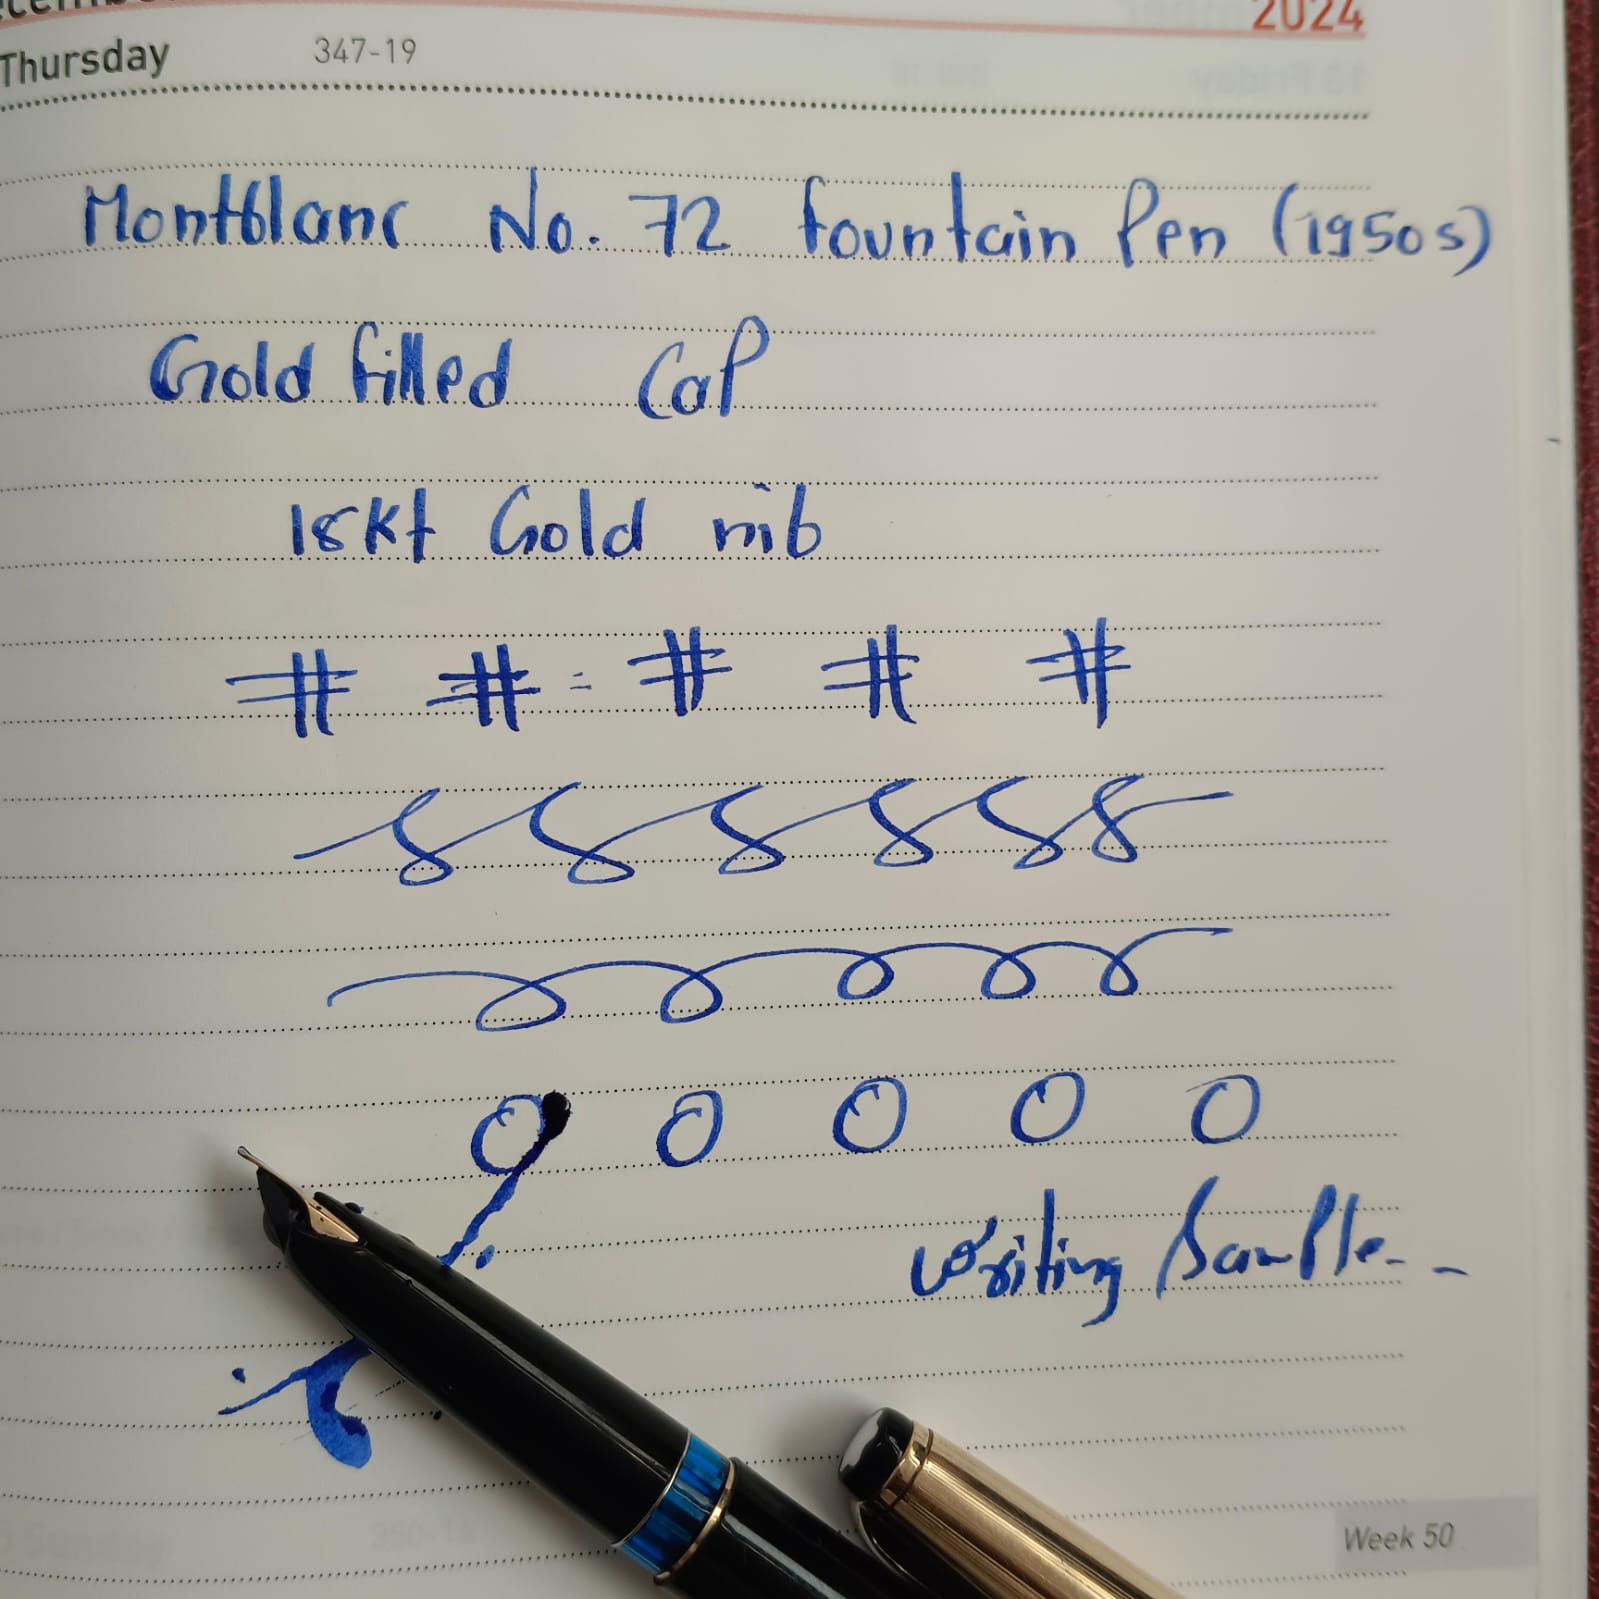 2024
Thursday 347-19
Montblanc No. 72 fountain Pen (1950s)
Gold filled Cap
18kt Gold nib
# # = # # #
O O O O O
Writing Sample--
Week 50